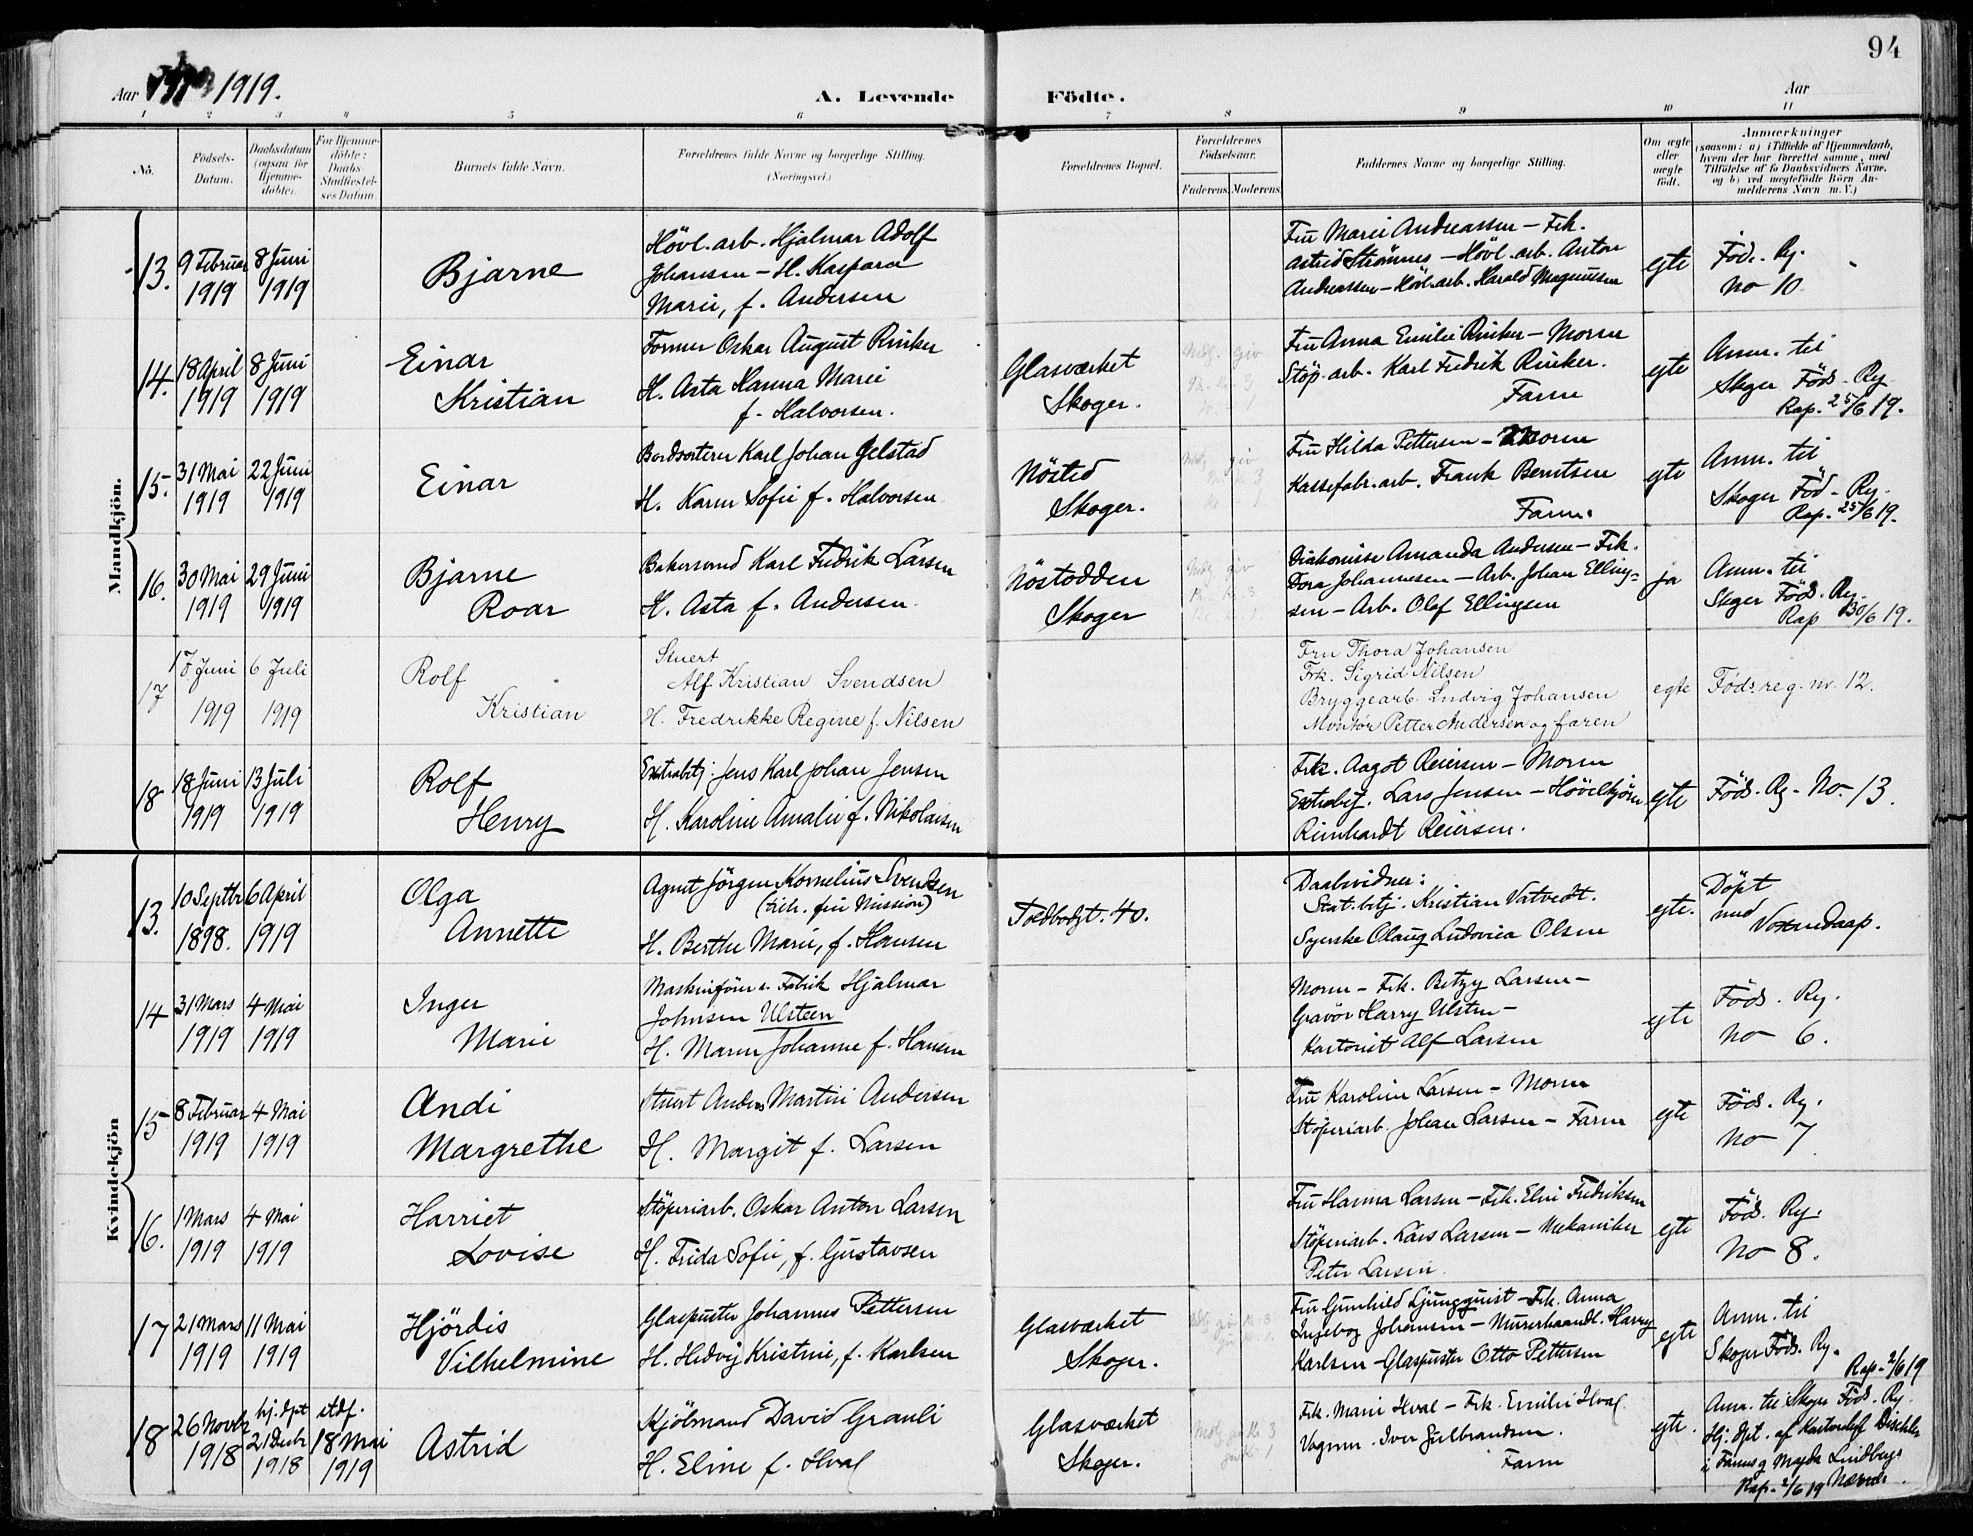 94
Aar 1919.
A. Levende Födte.
Aar
1 2 3 4 5 6 7 8 9 10 11
No.
Födsels-Datum.
Daabsdatum (ogsaa for Hjemmedöbte).
For Hjemmedöbte: Daabs Stadfæstelses Datum.
Barnets fulde Navn.
Forældrenes fulde Navne og borgerlige Stilling.
(Næringsvei.)
Forældrenes Bopæl.
Forældrenes Födselsaar.
Faderens. Moderens.
Faddernes Navne og borgerlige Stilling.
Om ægte eller uægte födt.
Anmærkninger
(saasom: a) i Tilfælde af Hjemmedaab, hvem der har forrettet samme, med Tilföielse af to Daabsvidners Navne, og b) ved uægtefödte Börn Anmelderens Navn m. V.)
Mandkjön.
13. 9 Februar 1919
8 Juni 1919
Bjarne
Hövl. arb. Hjalmar Adolf
Johansen – H. Kaspara
Marie, f. Andersen
Fru Marie Andreassen – Frk.
Astrid Strömnes – Hövl. arb. Anton
Andreassen – Hövl. arb. Harald Magnussen
egte
Föd. Rg.
No 10
14. 18 April 1919
8 Juni 1919
Einar
Kristian
Former Oskar August Rinker
H. Asta Hanna Marie
f. Halvorsen.
Glasværket
Skoger.
Fru Anna Emilie Rinker – Moren
Stöp. arb. Karl Fredrik Rinker.
Faren
egte
Anm. til
Skger Föds. Rg.
Rap. 25/6 19.
15. 31 Mai 1919
22 Juni 1919
Einar
Bordsorterer Karl Johan Gelstad
H. Karen Sofie f. Halvorsen
Nösted
Skoger.
Fru Hilda Pettersen – Moren
Kassefabr. arb. Frank Berntsen
Faren.
egte
Anm. til
Skoger Föd. Rg.
Rap. 25/6 19.
16. 30 Mai 1919
29 Juni 1919
Bjarne
Roar
Bakersvend Karl Fredrik Larsen
H. Asta f. Andersen.
Nöstodden
Skoger
Diakonisse Amanda Andersen – Frk.
Dora Johannesen – Arb. Johan Elling-
sen – Arb. Olaf Ellingsen
ja
Anm. til
Skger Föds. Rg.
Rap 30/6 19.
17 Juni 1919
6 Juli 1919
Rolf
Kristian
Stuert
Alf Kristian Svendsen
H. Fredrikke Regine f. Nilsen
Fru Thora Johansen
Frk. Sigrid Nilsen
Bryggearb. Ludvig Johansen
Montör Petter Andersen og faren
egte
Föds. reg. nr. 12.
18 18 Juni 1919
13 Juli 1919
Rolf
Henry
Extrabetj. Jens Karl Johan Jensen
H. Karoline Amalie f. Nikolaisen
Frk. Aagot Reiersen – Moren
Extrabetj. Lars Jensen –
Reinhardt Reiersen.
egte
Föds. Rg. No. 13.
Kvindekjön
13. 10 Septbr 1898.
6 April 1919
Olga
Annette
Agent Jörgen Kornelius Svendsen
(tilh. fri Mission)
H. Berthe Marie, f. Hansen
Toldbodgt. 40.
Daabsvidner:
Stat. betj. Kristian Vatvedt.
Syerske Olaug Ludovica Olsen
egte.
Döpt
med
Voxendaap.
14 31 Mars 1919
4 Mai 1919
Inger
Marie
Fabrik Hjalmar
Johnsen Ulsteen
H. Maren Johanne f. Hansen
Moren – Frk. Betzy Larsen –
Gravör Harry Ulsten –
Kartonist Alf Larsen
egte
Föds. Rg.
No 6.
15 8 Februar 1919
4 Mai 1919
Andi
Margrethe
Stuert Anders Martin Andersen
H. Margit f. Larsen
Fru Karoline Larsen – Moren
Stöperiarb. Johan Larsen – Faren
egte
Föds. Rg.
No 7
16. 1 Mars 1919
4 Mai 1919
Harriet
Lovise
Stöperiarb. Oskar Anton Larsen
H. Frida Sofie, f. Gustavsen
Fru Hanna Larsen – Frk. Elni Fredriksen
Stöperiarb. Lars Larsen – Mekaniker
Peter Larsen.
egte
Föd. Rg.
No 8.
17 21 Mars 1919
11 Mai 1919
Hjördis
Vilhelmine
Glaspuster Johannes Pettersen
H. Hedvig Kristine, f. Karlsen
Glasværket
Skoger.
Fru Gunhild Ljungquist – Frk. Anna
Ingeborg Johansen – Murerhaandl. Harry
Karlsen – Glaspuster Otto Pettersen
egte
Anm. til
Skoger Föds. Rg.
Rap. 2/6 19
18 26 Novbr 1918
hj. dpt 21 Decbr 1918
stdf. 18 Mai 1919
Astrid
Kjöbmand David Granli
H. Eline f. Hval
Glasværket
Skoger.
Frk. Marie Hval – Frk. Emilie Hval
Vognm. Iver Gulbrandsen.
Faren
egte.
Anm. til Skoger Föd. Rg.
Hj. dpt. af
Magda Lindberg
Rap. 2/6 19